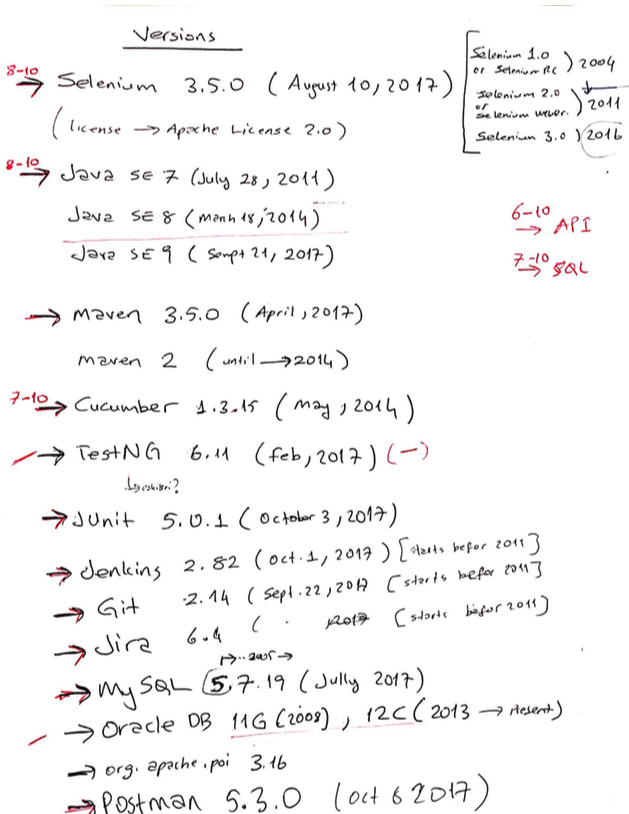 Versions
8-10 → Selenium 3.5.0 ( August 10, 2017)
( license → Apache License 2.0 )
Selenium 1.0
or Selenium RC ) 2004
Selenium 2.0
or
Selenium Weber. ) 2011
Selenium 3.0 ) 2016
8-10 → Java SE 7 (July 28, 2011)
Java SE 8 (March 18, 2014)
Java SE 9 ( Sempt 21, 2017)
6-10
→ API
7-10
→ SQL
→ Maven 3.5.0 (April, 2017)
maven 2 (until → 2014)
7-10 → Cucumber 1.3.15 (May, 2014)
→ TestNG 6.11 (feb, 2017) (-)
→ JUnit 5.0.1 (October 3, 2017)
→ Jenkins 2.82 (Oct. 1, 2017) [starts befor 2011]
→ Git 2.14 ( Sept. 22, 2017 [starts befor 2011]
→ Jira 6.4 ( . 2017 [starts befor 2011]
→ MySQL 5.7.19 (Jully 2017)
→ Oracle DB 11G (2008), 12C (2013 → Present)
→ org. apache.poi 3.16
→ Postman 5.3.0 (oct 6 2017)